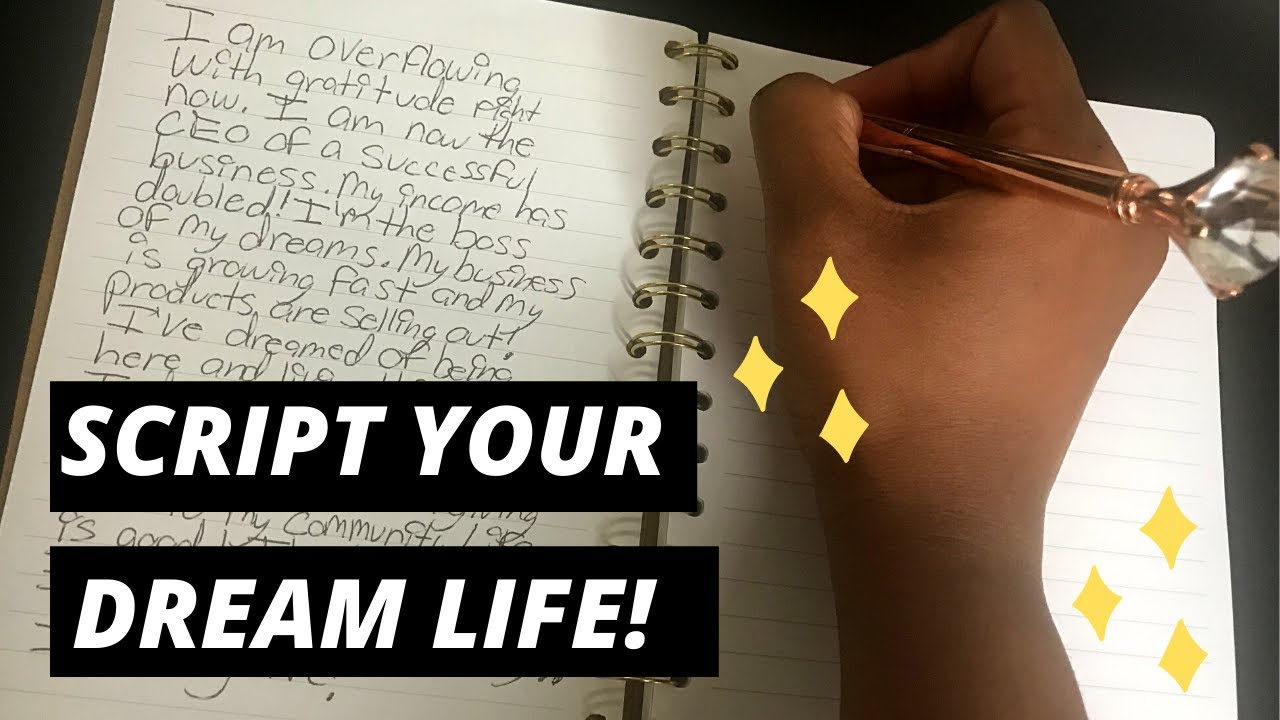 I am overflowing
with gratitude right
now. I am now the
CEO of a successful
business. My income has
doubled! I'm the boss
of my dreams. My business
is growing fast and my
products are selling out!
I've dreamed of being
here and
SCRIPT YOUR
my community
is good
DREAM LIFE!